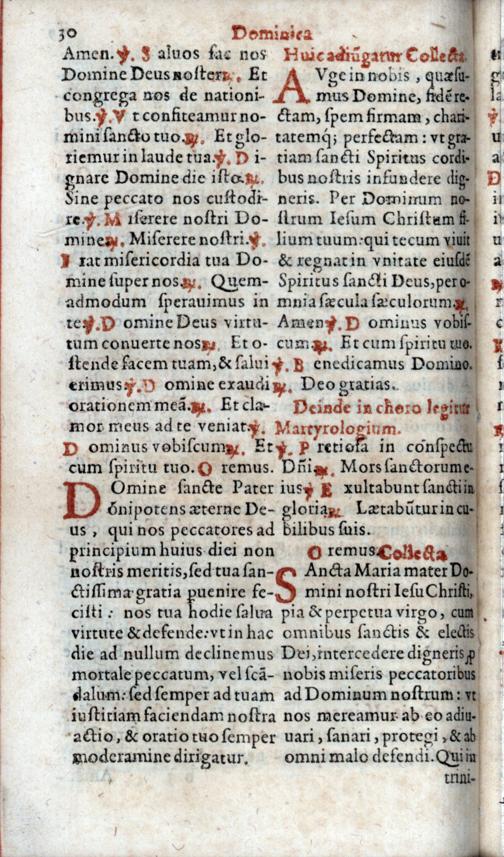 30
Dominica
Amen. ℣. S aluos fac nos
Domine Deus noster ℟. Et
congrega nos de nationi-
bus. ℣. V t confiteamur no-
mini sancto tuo. ℟. Et glo-
riemur in laude tua. ℣. D i-
gnare Domine die isto. ℟.
Sine peccato nos custodi-
re. ℣. M iserere nostri Do-
mine ℟. Miserere nostri. ℣.
F iat misericordia tua Do-
mine super nos. ℟. Quem-
admodum sperauimus in
te. ℣. D omine Deus virtu-
tum conuerte nos ℟. Et o-
stende facem tuam, & salui
erimus ℣. D omine exaudi
orationem meã. ℟. Et cla-
mor meus ad te veniat. ℣.
D ominus vobiscum ℟. Et
cum spiritu tuo. O remus.
DOmine sancte Pater
õnipotens æterne De-
us, qui nos peccatores ad
principium huius diei non
nostris meritis, sed tua san-
ctissima gratia puenire fe-
cisti: nos tua hodie salua
virtute & defende: vt in hac
die ad nullum declinemus
mortale peccatum, vel scã-
dalum: sed semper ad tuam
iustitiam faciendam nostra
actio, & oratio tuo semper
moderamine dirigatur.
Huic adiũgatur Collecta
AVge in nobis, quæsu-
mus Domine, fidẽ re-
ctam, spem firmam, chari-
tatemq; perfectam: vt gra-
tiam sancti Spiritus cordi-
bus nostris infundere dig-
neris. Per Dominum no-
strum Iesum Christum fi-
lium tuum: qui tecum viuit
& regnat in vnitate eiusdẽ
Spiritus sancti Deus, per o-
mnia sæcula sæculorum. ℟.
Amen ℣. D ominus vobis-
cum. ℟. Et cum spiritu tuo.
℣. B enedicamus Domino.
℟. Deo gratias.
Deinde in choro legitur
Martyrologium.
℣. P retiosa in cõnspectu
Dñi ℟. Mors sanctorum e-
ius ℣ E xultabunt sancti in
gloria ℟ Lætabũtur in cu-
bilibus suis.
O remus. Collecta
SAncta Maria mater Do-
mini nostri Iesu Christi,
pia & perpetua virgo, cum
omnibus sanctis & electis
Dei, intercedere digneris ꝓ
nobis miseris peccatoribus
ad Dominum nostrum: vt
nos mereamur ab eo adiu-
uari, sanari, protegi, & ab
omni malo defendi. Qui in
trini-